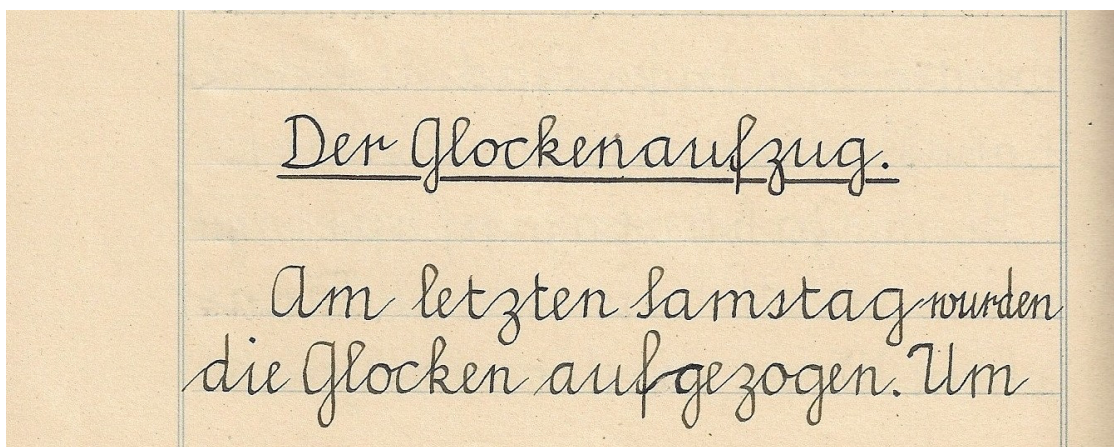 Der Glockenaufzug.
Am letzten Samstag wurden
die Glocken aufgezogen. Um